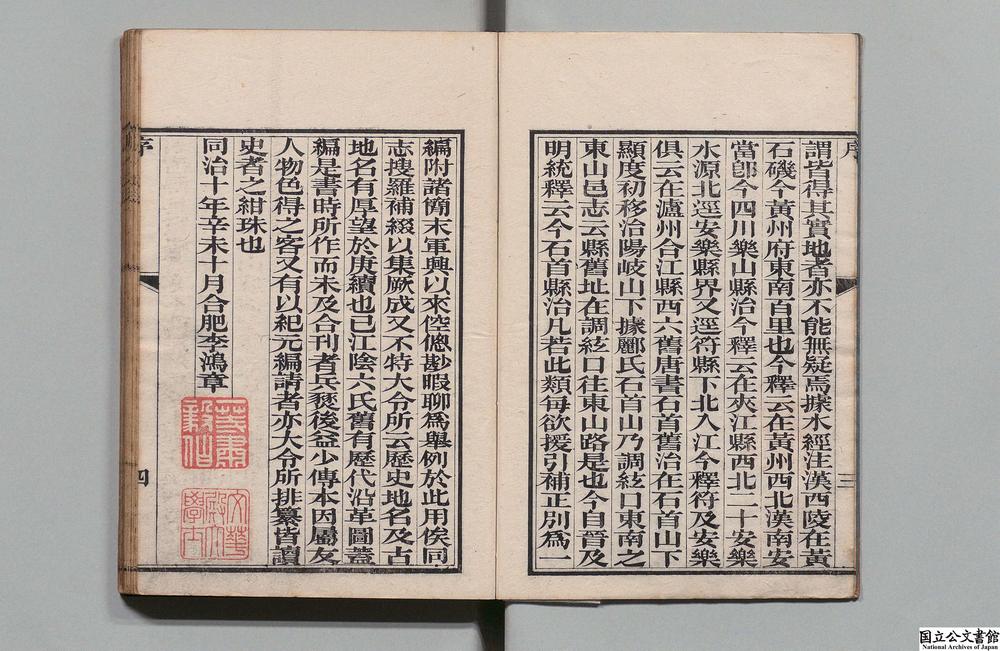 序
謂皆得其實地者亦不能無疑焉據水經注漢西陵在黃
石磯今黃州府東南百里也今釋云在黃州西北漢南安
當卽今四川樂山縣治今釋云在夾江縣西北二十安樂
水源北逕安樂縣界又逕符縣下北入江今釋符及安樂
俱云在瀘州合江縣西六舊唐書石首舊治在石首山下
顯度初移治陽岐山下據酈氏石首山乃調絃口東南之
東山邑志云縣舊址在調絃口往東山路是也今自晉及
明統釋云今石首縣治凡若此類每欲援引補正別為一
三
編附諸簡末軍興以來倥傯尠暇聊爲舉例於此用俟同
志搜羅補綴以集厥成又不特大令所云歷史地名及古
地名有厚望於庚續也已江陰六氏舊有歷代沿革圖蓋
編是書時所作而未及合刊者兵燹後益少傳本因屬友
人物色得之客又有以紀元編請者亦大令所排纂皆讀
史者之紺珠也
同治十年辛未十月合肥李鴻章
肅毅伯
文華殿大學士
序
四
国立公文書館
National Archives of Japan